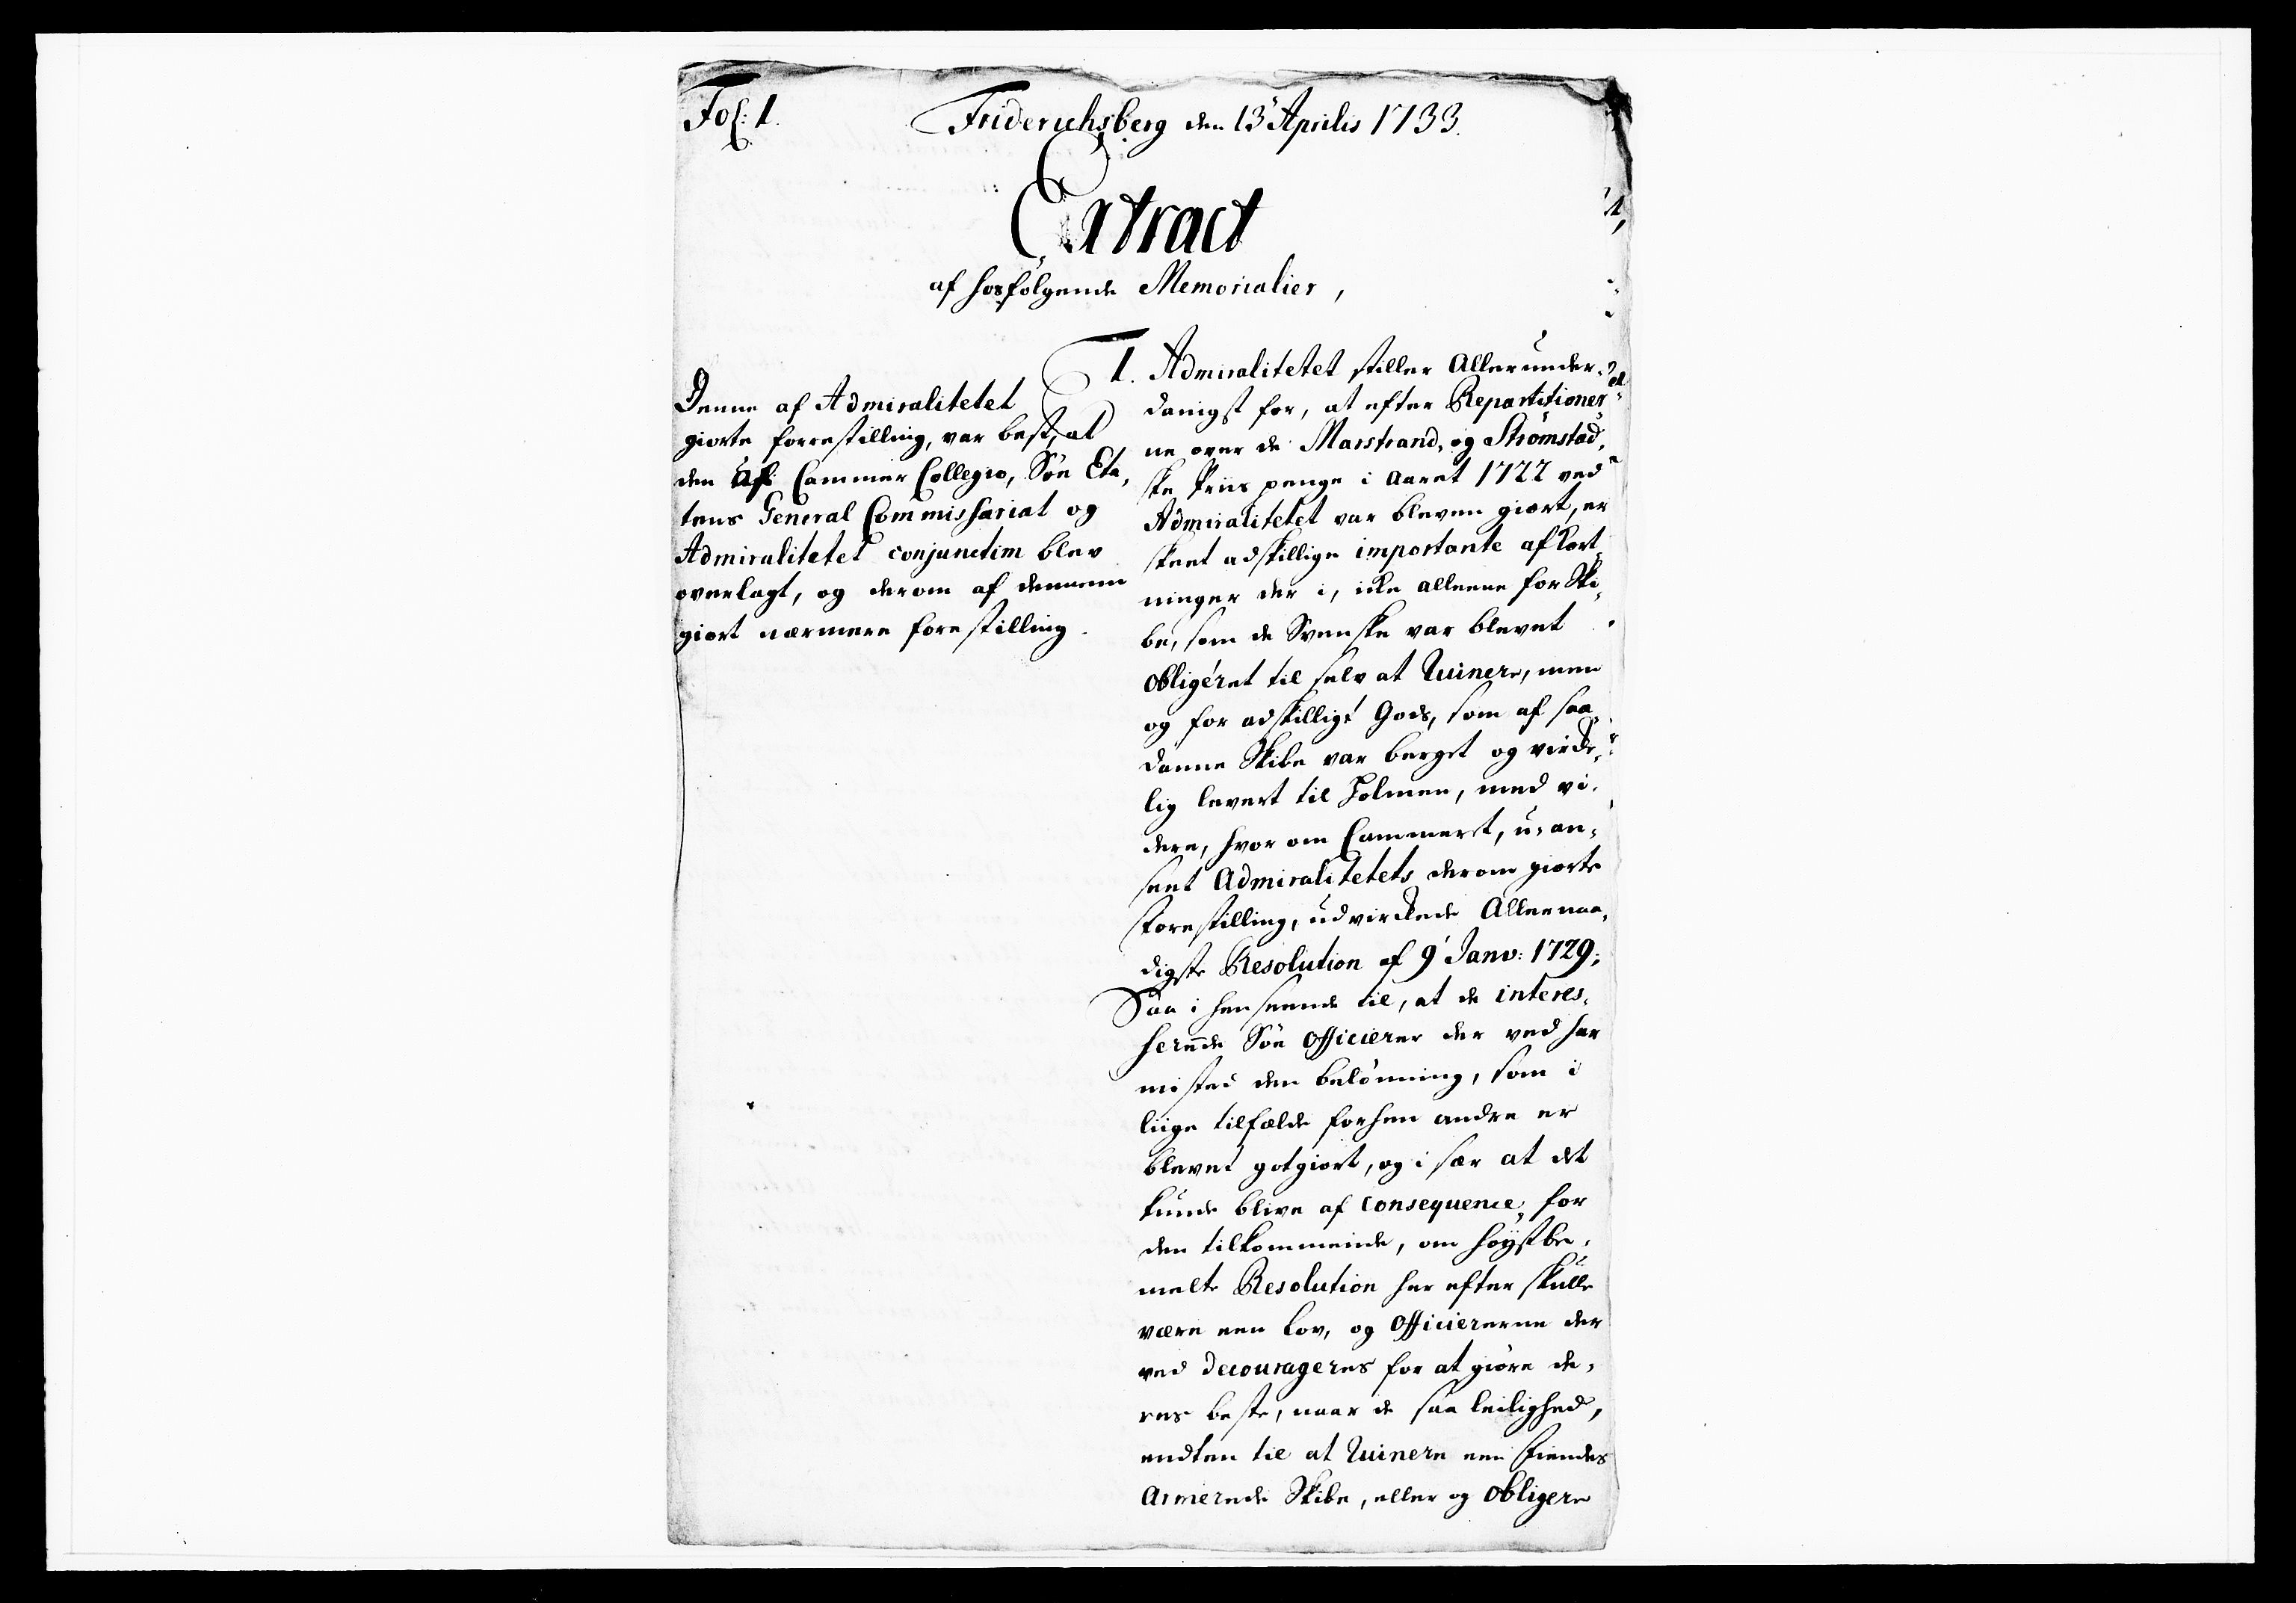 Fol: 1.
Friderichsberg den 13' Aprilis 1733.
Extract
af hosfølgende Memorialier,
Denne af Admiralitetet
giorte forrestilling, var best, at
den af Cammer Collegio, Søe Eta,
tens General Commissariat og
Admiralitetet conjunctim blev
overlagt, og derom af dennem
giort nærmere forestilling.
1. Admiralitetet stiller Allerunder,
danigst for, at efter Repartitioner,
ne over de Marstrand, og Strömstad,
ske Priis penge i Aaret 1722 ved
Admiralitetet var bleven giort, er
skeet adskillige importante afkort,
ninger der i, icke alleene for Ski,
be, som de Svenske var blevet
Obligéret til selv at Ruinere, men
og for adskillige Gods, som af saa,
danne Skibe var berget og virke,
lig levert til Holmen, med vi,
dere, hvor om Cammeret, u,an,
seet Admiralitetets derom giorte
Forestilling, udvirkede Allernaa,
digste Resolution af 9' Janv: 1729;
Saa i henseende til, at de interes,
serede Søe Officierer der ved har
mistet den belønning, som i
liige tilfælde forhen andre er
blevet gotgiort, og i sær at det
kunde blive af Consequence, for
den tilkommende, om høystbe,
melte Resolution her efter skulle
være een Lov, og Officiererne der
ved decourageres for at giøre de,
res beste, naar de faa leilighed,
endten til at Ruinere een Fiendes
Armerede Skibe, eller og Obligere